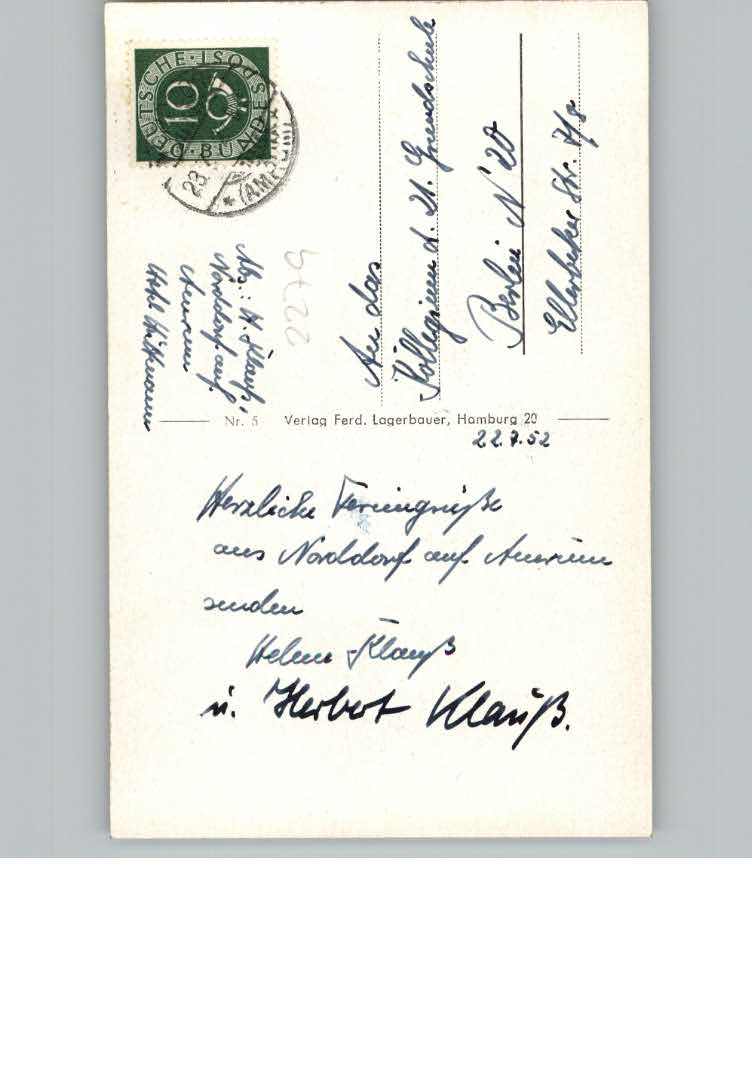 DEUTSCHE BUNDESPOST
10
23.
(AMRUM)
An das
Kollegium d. 21. Grundschule
Berlin N 20
Ellerbeker Str. 7/8
Abs.: H. Klauß,
Norddorf auf
Amrum
Hotel Hüttmann
Nr. 5 Verlag Ferd. Lagerbauer, Hamburg 20
22.7.52
Herzliche Feriengrüße
aus Norddorf auf Amrum
senden
Klauß
u. Herbert Klauß.